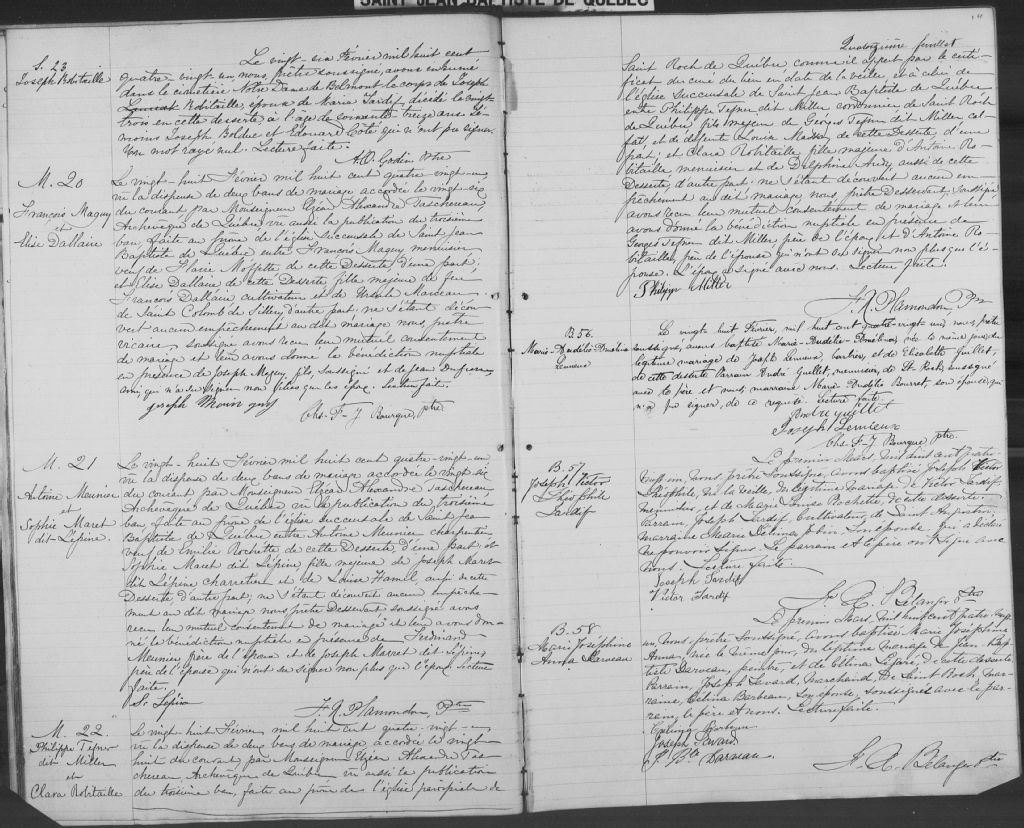 SAINT JEAN-BAPTISTE DE QUÉBEC
S. 23
Joseph Robitaille
Le vingt-six Février mil huit cent
quatre-vingt un, nous, prêtre soussigné, avons inhumé
dans le cimetière Notre Dame de Belmont le corps de Joseph
Robitaille, époux de Marie Tardif, décédé le vingt
trois en cette desserte à l'âge de soixante treize ans. Té-
moins Joseph Bolduc et Edouard Coté qui n'ont pu signer.
Un mot rayé nul. Lecture faite.
Godin Ptre
M. 20
François Maguy
et
Elise Dallaire
Le vingt-huit Février mil huit cent quatre-vingt-un
vu la dispense de deux bans de mariage accordée le vingt-six
du courant par Monseigneur Elzéar Alexandre Taschereau
Archevêque de Québec vu aussi la publication du troisième
ban, faite au prône de l'église succursale de Saint Jean
Baptiste de Québec entre François Maguy menuisier
veuf de Moffette de cette Desserte, d'une part;
et Elise Dallaire de cette Desserte fille majeure de feu
François Dallaire cultivateur et de Marceau
de Saint Colomb de Sillery, d'autre part: ne s'étant décou-
vert aucun empêchement au dit mariage nous prêtre
vicaire, soussigné avons reçu leur mutuel consentement
de mariage et leur avons donné la bénédiction nuptiale
en présence de Joseph Maguy fils, soussigné et de Jean
ami qui n'a su signer non plus que les époux. Lecture faite.
Joseph
Chs. F-J Bourque, ptre.
M. 21
Antoine Meunier
et
Sophie Maret
dit Lépine.
Le vingt-huit Février mil huit cent quatre-vingt-un
vu la dispense de deux bans de mariage accordée le vingt six
du courant par Monseigneur Elzéar Alexandre Taschereau
Archevêque de Québec vu la publication du troisième
ban faite au prône de l'église succursale de Saint Jean
Baptiste de Québec entre Antoine Meunier charpentier,
veuf de Emilie Rochette de cette Desserte d'une part: et
Sophie Maret dit Lépine, fille majeure de Joseph Maret
dit Lépine charretier et de Louise Hamel, aussi de cette
Desserte d'autre part; ne s'étant découvert aucun empêche-
ment au dit mariage nous prêtre Desservant soussigné avons
reçu leur mutuel consentement de mariage et leur avons don-
né la bénédiction nuptiale en présence de Ferdinand
Meunier, frère de l'époux et de Joseph Maret dit Lépine
père de l'épouse qui n'ont su signer non plus que l'époux. Lecture
faite.
S. Lépine
F. X. Plamondon, Ptre
M. 22
Philippe Tefner
dit Miller
et
Clara Robitaille
Le vingt-huit Février mil huit cent quatre-vingt-un
vu la dispense de deux bans de mariage accordée le vingt-
huit du courant par Monseigneur Elzéar Alexandre Tas-
chereau, Archevêque de Québec vu aussi la publication
du troisième ban, faite au prône de l'église paroissiale de
Quatorzième feuillet
Saint Roch de Québec comme il appert par le certi-
ficat du curé du lieu en date de la veille, et à celui de
l'église succursale de Saint Jean Baptiste de Québec
entre Philippe Tefner dit Miller cordonnier de Saint Roch
de Québec, fils majeur de Georges Tefner dit Miller
et de défunte Louise de cette Desserte, d'une
part; et Clara Robitaille fille majeure d'Antoine Ro-
bitaille menuisier et de Delphine aussi de cette
Desserte, d'autre part: ne s'étant découvert aucun em-
pêchement au dit mariage, nous, prêtre Desservant, soussigné
avons reçu leur mutuel consentement de mariage et leur
avons donné la bénédiction nuptiale en présence de
Georges Tefner dit Miller père de l'époux et d'Antoine Ro-
bitaille, père de l'épouse qui n'ont su signer non plus que l'é-
pouse. L'époux a signé avec nous. Lecture faite.
Philippe Miller
F. X. Plamondon Ptre
B 56.
Marie-Audélie-
Lemieux
Le vingt huit Février, mil huit cent quatre-vingt un, nous, prêtre
soussigné, avons baptisé Marie-Audélie- née le même jour, du
légitime mariage de Joseph Lemieux, barbier, et de Elizabeth Guillet,
de cette desserte. Parrain André Guillet, menuisier, de St. Roch, soussigné
avec le père et nous, marraine Marie Bourret son épouse, qui
n'a pu signer, de ce requise. Lecture faite.
André Guillet
Joseph Lemieux
Chs. F-J Bourque ptre.
B. 57
Joseph Victor
Théophile
Tardif
Le premier Mars, mil huit cent quatre-
vingt un, nous, prêtre soussigné, avons baptisé Joseph Victor
Théophile, né la veille, du légitime mariage de Victor Tardif,
menuisier, et de Marie Louise Rochette de cette desserte.
Parrain, Joseph Tardif, Cultivateur, de Saint Augustin,
marraine Marie Delima Jobin, son épouse, qui a déclaré
ne pouvoir signer. Le parrain et le père ont signé avec
nous. Lecture faite.
Joseph Tardif
Victor Tardif
F. X. Bélanger Ptre
B. 58
Marie Joséphine
Anna Darveau
Le premier Mars, mil huit cent quatre-vingt
un, nous, prêtre soussigné, avons baptisé Marie Joséphine
Anna, née le même jour, du légitime mariage de Jean Bap-
tiste Darveau, peintre, et de de cette desserte.
Parrain, Joseph Savard, Marchand, de Saint Roch, mar-
raine, Célina Barbeau, son épouse, soussignés avec le par-
rain, le père et nous. Lecture faite.
Célina Barbeau
Joseph Savard
J. Bte Darveau
F. X. Bélanger Ptre